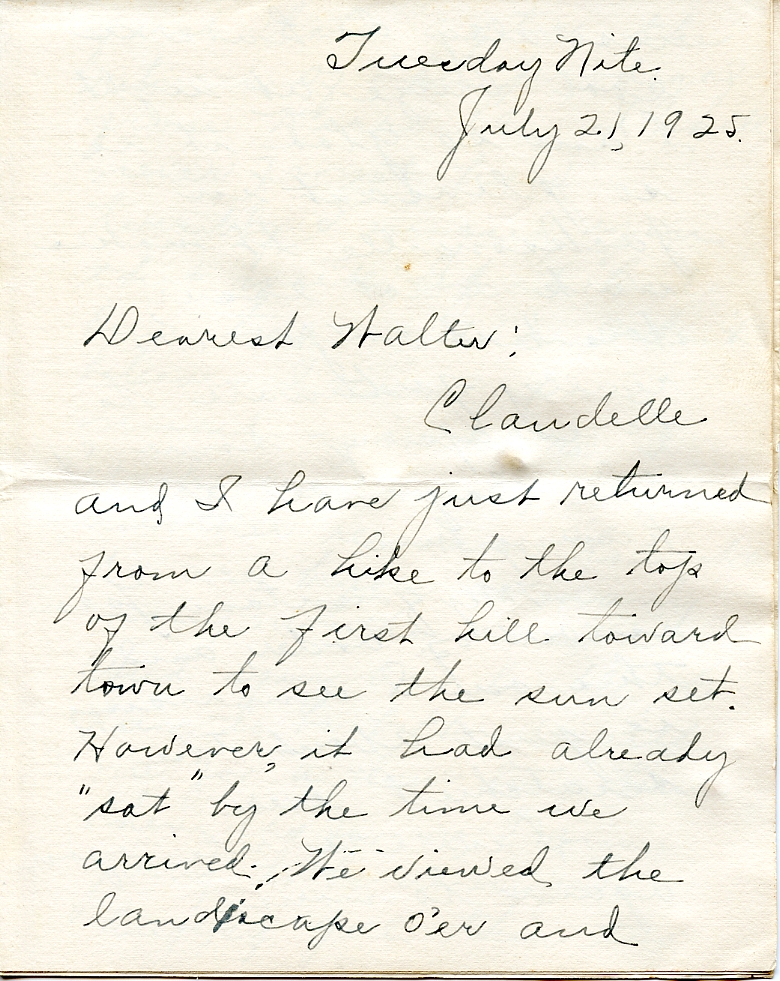 Tuesday Nite.
July 21, 1925.
Dearest Walter:
Claudelle
and I have just returned
from a hike to the top
of the first hill toward
town to see the sun set.
However, it had already
"sat" by the time we
arrived. We viewed the
landscape o'er and